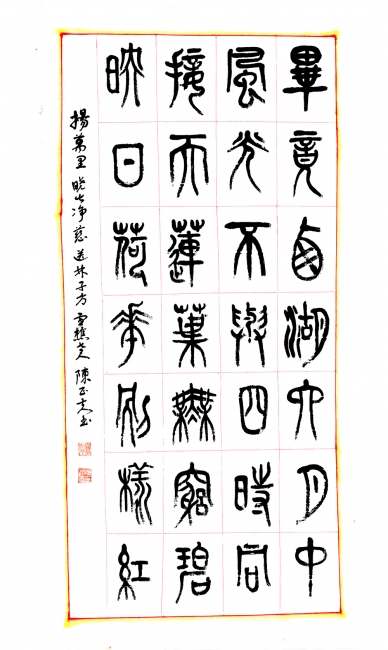 畢竟西湖六月中
風光不與四時同
接天蓮葉無窮碧
映日荷花別樣紅
揚萬里 曉出净慈送林子方 陳正書